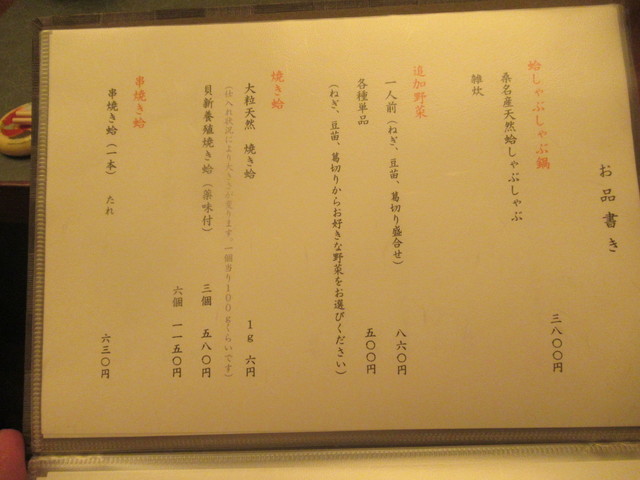 お品書き
蛤しゃぶしゃぶ鍋
桑名産天然蛤しゃぶしゃぶ 三八〇〇円
雑炊
追加野菜
一人前（ねぎ、豆苗、葛切り盛合せ） 八六〇円
各種単品 五〇〇円
（ねぎ、豆苗、葛切りからお好きな野菜をお選びください）
焼き蛤
大粒天然 焼き蛤 1g 六円
（仕入れ状況により大きさが変ります。一個当り100gくらいです）
貝新養殖焼き蛤（薬味付） 三個 五八〇円
六個 一一五〇円
串焼き蛤
串焼き蛤（一本） たれ 六三〇円